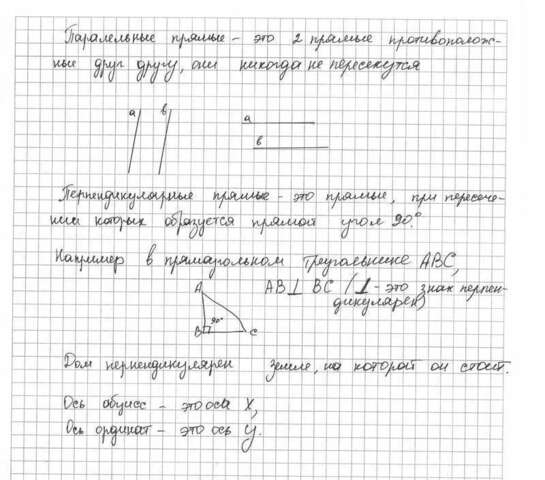 Паралельные прямые - это 2 прямые противополож-
ные друг другу, они никогда не пересекутся
а в
а
в
Перпендикулярные прямые - это прямые, при пересече-
нии которых образуется прямой угол 90°.
Например в прямоугольном треугольнике ABC,
AB⊥ BC (⊥ - это знак перпен-
дикулярен)
A
90°
B C
Дом перпендикулярен земле, на которой он стоит.
Ось абцисс - это ось X,
Ось ординат - это ось y.